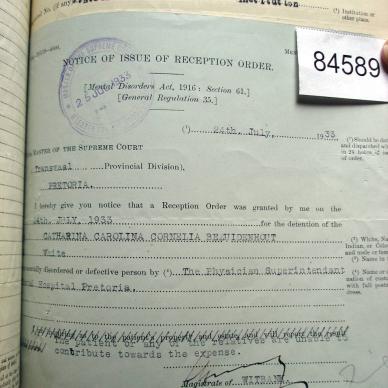 Institution
(¹) Institution or
other place.
84589
NOTICE OF ISSUE OF RECEPTION ORDER.
[Mental Disorders Act, 1916: Section 61.]
[General Regulation 35.]
25 JUL 1933
(¹) 24th. July, 1933
MASTER OF THE SUPREME COURT
Transvaal Provincial Division),
PRETORIA.
I hereby give you notice that a Reception Order was granted by me on the
24th. JULY. 1933 for the detention of the
CATHARINA CAROLINA CORNELIA BEZUIDENHOUT
White
mentally disordered or defective person by (⁴) The Physician Superintendant
Hospital Pretoria.
The patient or any of the relatives are unable to
contribute towards the expense.
Magistrate of WITBANK
(¹) Should be
and dispatched
in 24 hours
of order.
(²) White,
Indian or
and male or
(³) Name
(⁴) Name or
nation of
with full
dress.